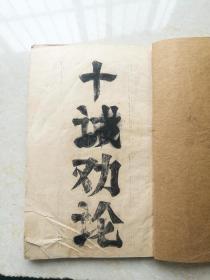 十诫劝论